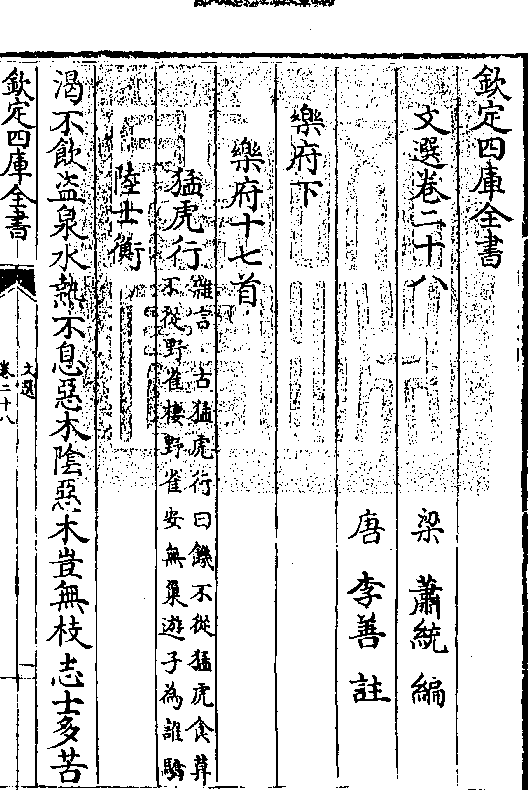 欽定四庫全書
文選卷二十八
梁 蕭統 編
唐 李善 註
樂府下
樂府十七首
猛虎行
雜言 古猛虎行曰饑不從猛虎食暮
不從野雀棲野雀安無巢遊子為誰驕
陸士衡
渴不飲盗泉水熱不息惡木陰惡木豈無枝志士多苦
欽定四庫全書
文選
卷二十八
一